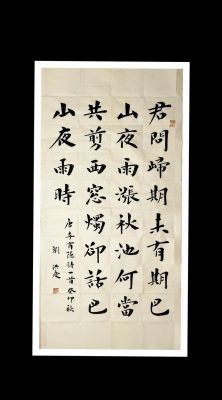 君問歸期未有期巴
山夜雨漲秋池何當
共剪西窗燭卻話巴
山夜雨時
唐李商隱詩一首癸卯秋
劉洪